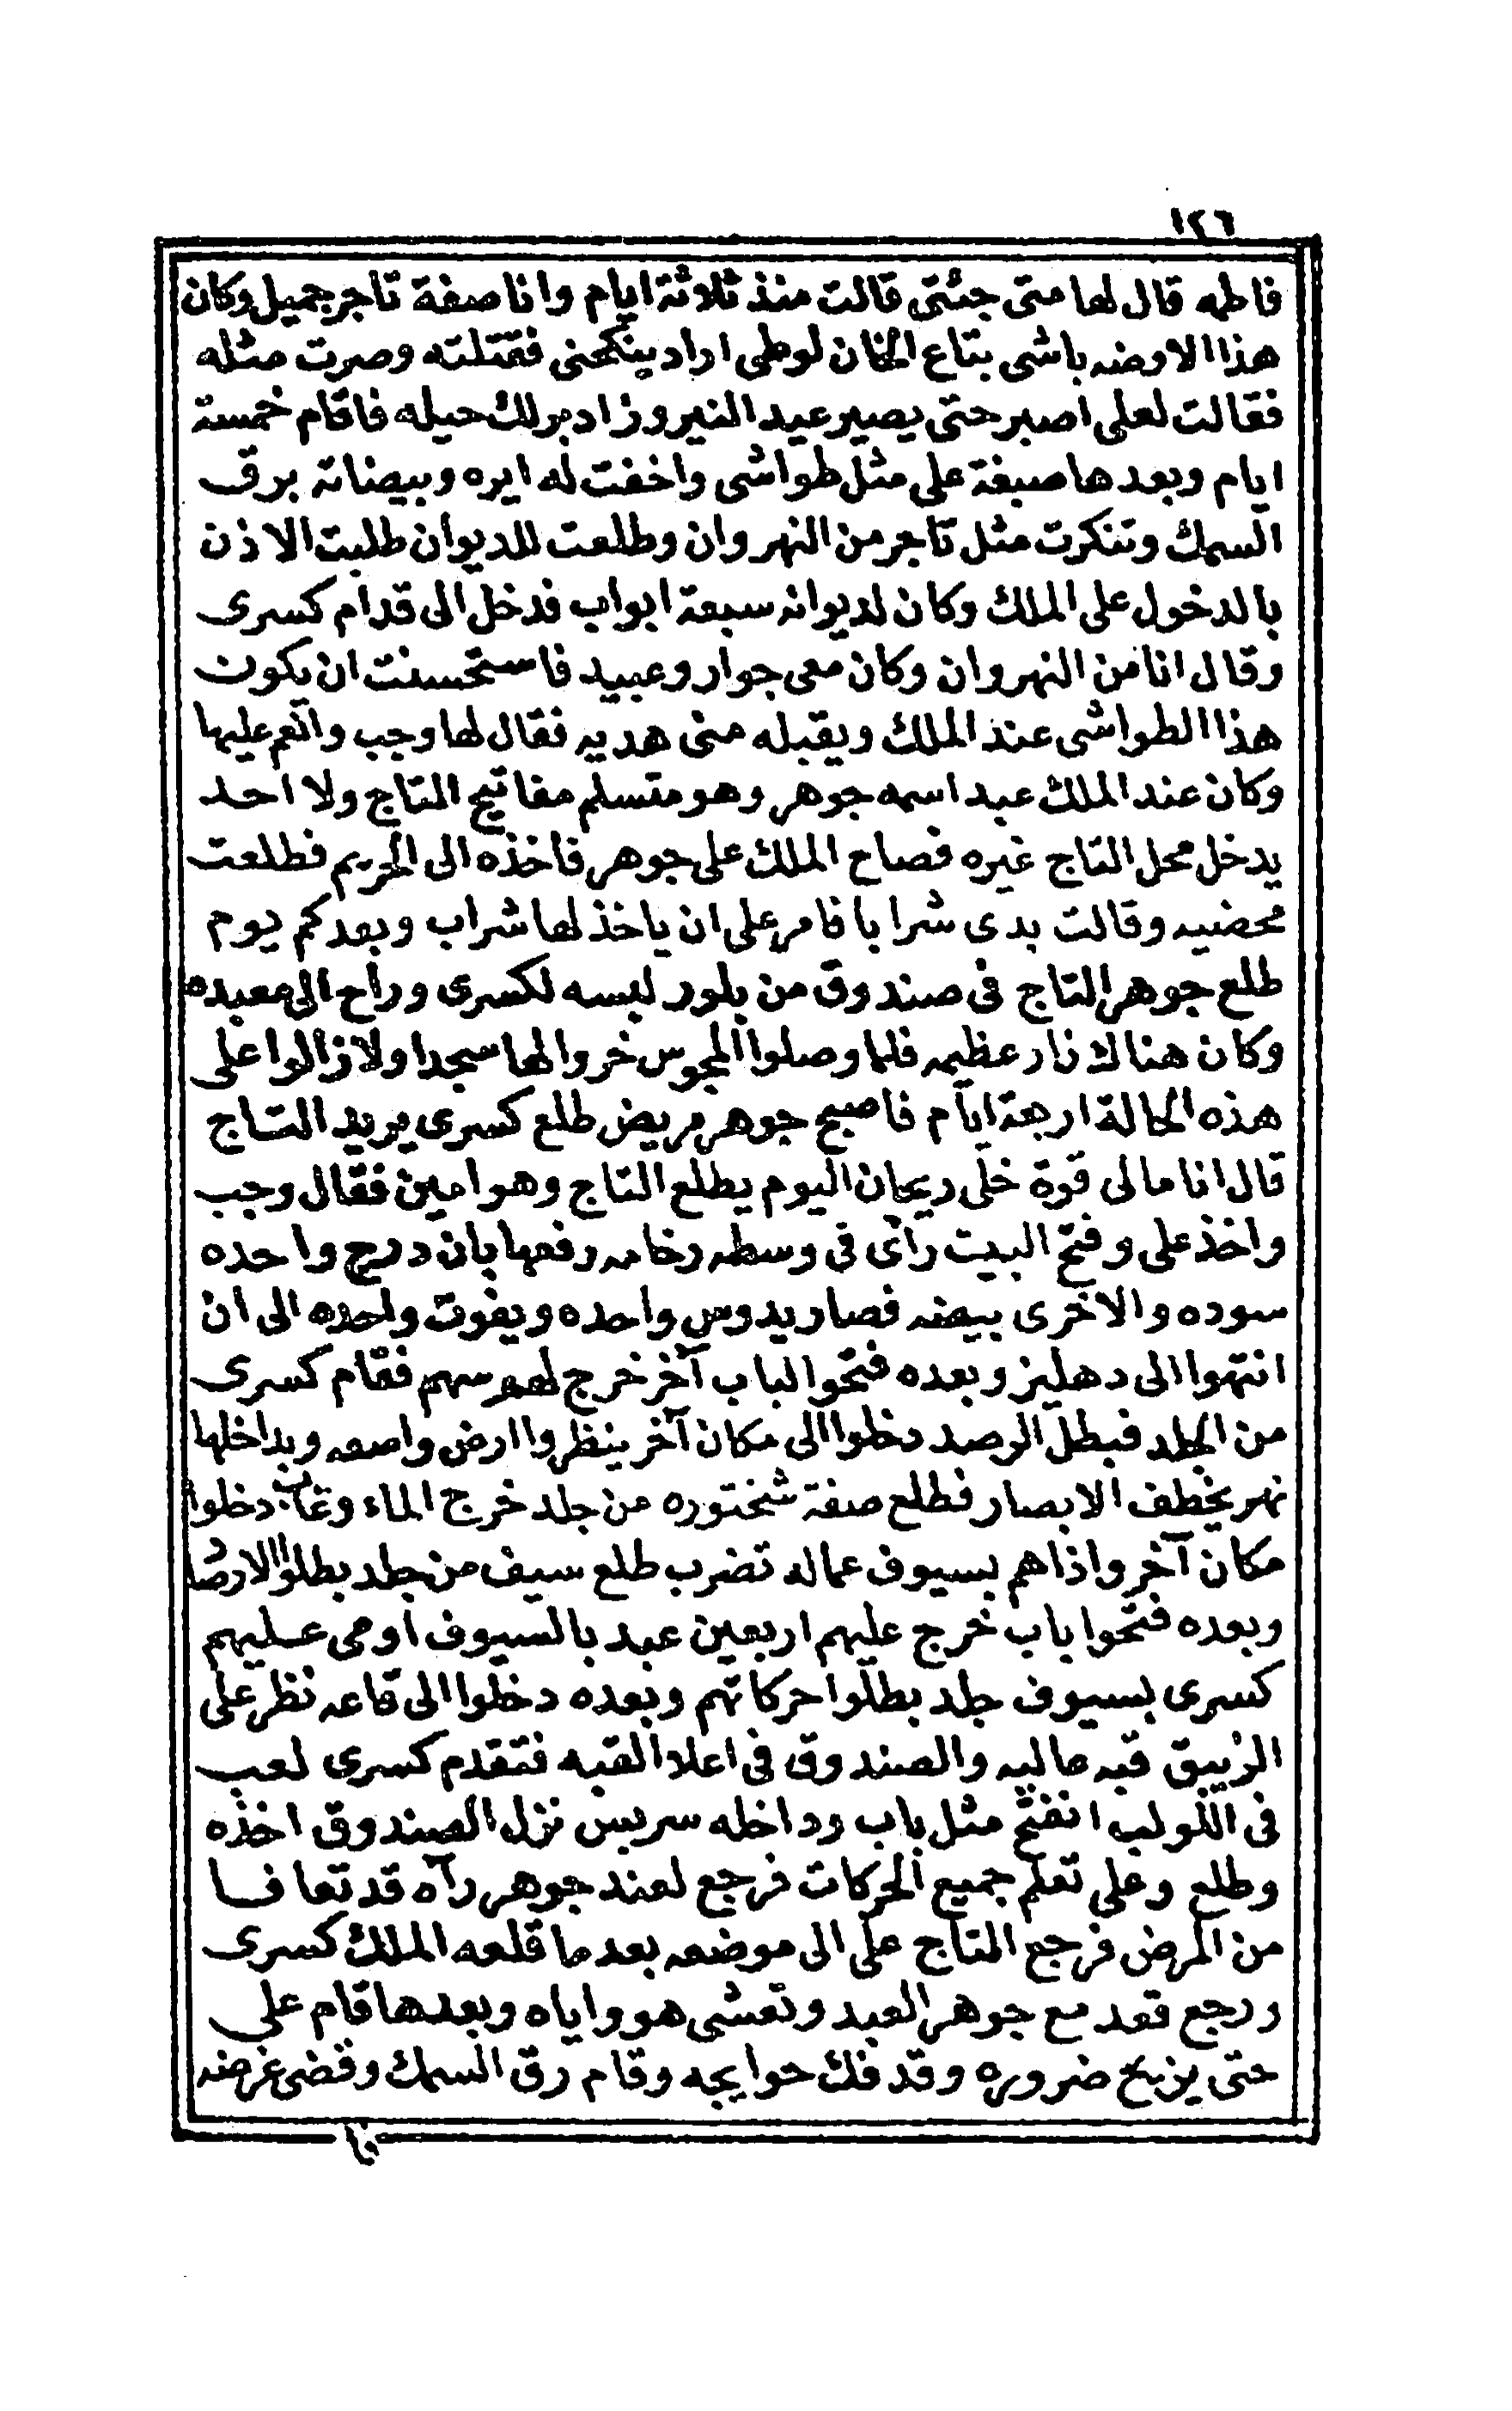 ١٢٦
فاطمه قال لها متى جئتى قالت منذ ثلاثة ايام وانا صفة تاجر جميل وكان
هذا الاوضه باشى بتاع الخان لوطى اراد ينكحنى فقتلته وصرت مثله
فقالت لعلى اصبر حتى يصير عيد النيروز ادبر لك حيله فاقام خمسة
ايام وبعدها صبغة على مثل طواشى واخفت له ايره وبيضاته برق
السمك وتنكرت مثل تاجر من النهروان وطلعت للديوان طلبت الاذن
بالدخول على الملك وكان لديوانه سبعة ابواب فدخل الى قدام كسرى
وقال انا من النهروان وكان معى جوار وعبيد فاستحسنت ان يكون
هذا الطواشى عند الملك ويقبله منى هديه فقال لها وجب وانعم عليها
وكان عند الملك عبد اسمه جوهر وهو متسلم مفاتيح التاج ولا احد
يدخل محل التاج غيره فصاح الملك على جوهر فاخذه الى الحريم فطلعت
محضيه وقالت بدى شرابا فامر على ان ياخذ لها شراب وبعد كم يوم
طلع جوهر التاج فى صندوق من بلور لبسه لكسرى وراح الى معبده
وكان هناك نار عظيمه فلما وصلوا المجوس خروا لها سجدا ولا زالوا على
هذه الحالة اربعة ايام فاصبح جوهر مريض طلع كسرى يريد التاج
قال انا مالى قوة خلى ريحان اليوم يطلع التاج وهو امين فقال وجب
واخذ على وفتح البيت رأى فى وسطه رخامه رفعها بان درج واحده
سوده والاخرى بيضه فصار يدوس واحده ويفوت واحده الى ان
انتهوا الى دهليز وبعده فتحوا لباب آخر خرج لهم سهم فقام كسرى
من الجلد فبطل الرصد دخلوا الى مكان آخر ينظروا ارض واصعه وبداخلها
نهر يخطف الابصار فطلع صفة شختوره من جلد خرج الماء وغاب دخلوا
مكان آخر واذا هم بسيوف عماله تضرب طلع سيف من جلد بطلوا الارصاد
وبعده فتحوا باب خرج عليهم اربعين عبد بالسيوف اومى عليهم
كسرى بسيوف جلد بطلوا حركاتهم وبعده دخلوا الى قاعه نظر على
الزيبق قبه عاليه والصندوق فى اعلا القبه فتقدم كسرى لعب
فى اللولب انفتح مثل باب وداخله سربس نزل الصندوق اخذه
وطلع وعلى تعلم جميع الحركات فرجع لعند جوهر رآه قد تعافا
من المرض فرجع التاج على الى موضعه بعد ما قلعه الملك كسرى
ورجع قعد مع جوهر العبد وتعشى هو واياه وبعدها قام على
حتى يزيح ضروره وقد فك حوايجه وقام رق السمك وقضى غرضه